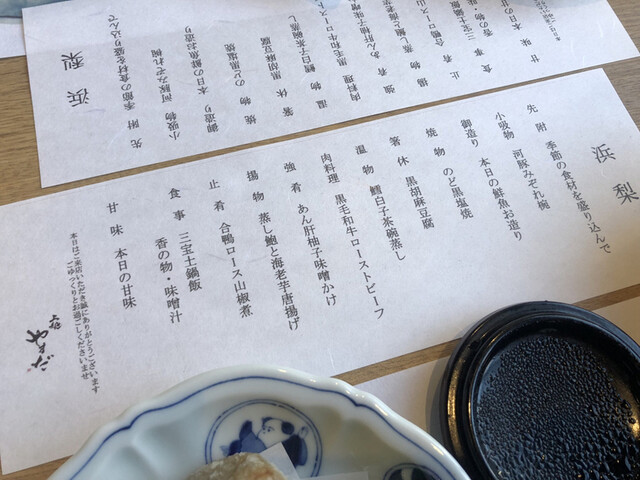 浜梨
先附 季節の食材を盛り込んで
小吸物 河豚みぞれ椀
御造り 本日の鮮魚お造り
焼物 のど黒塩焼
箸休 黒胡麻豆腐
温物 鱈白子茶碗蒸し
肉料理 黒毛和牛ローストビーフ
強肴 あん肝柚子味噌かけ
揚物 蒸し鮑と海老芋唐揚げ
止肴 合鴨ロース山椒煮
食事 三宝土鍋飯
香の物・味噌汁
甘味 本日の甘味
本日はご来店いただき誠にありがとうございます
ごゆっくりとお過ごしくださいませ
浜梨
先附 季節の食材を盛り込んで
小吸物 河豚みぞれ椀
御造り 本日の鮮魚お造り
焼物 のど黒塩焼
箸休 黒胡麻豆腐
温物 鱈白子茶碗蒸し
肉料理 黒毛和牛ロース
強肴 あん肝柚子味噌
揚物 蒸し鮑と海老芋
止肴 合鴨ロース山
食事 三宝土鍋飯
香の物・味
甘味 本日の甘